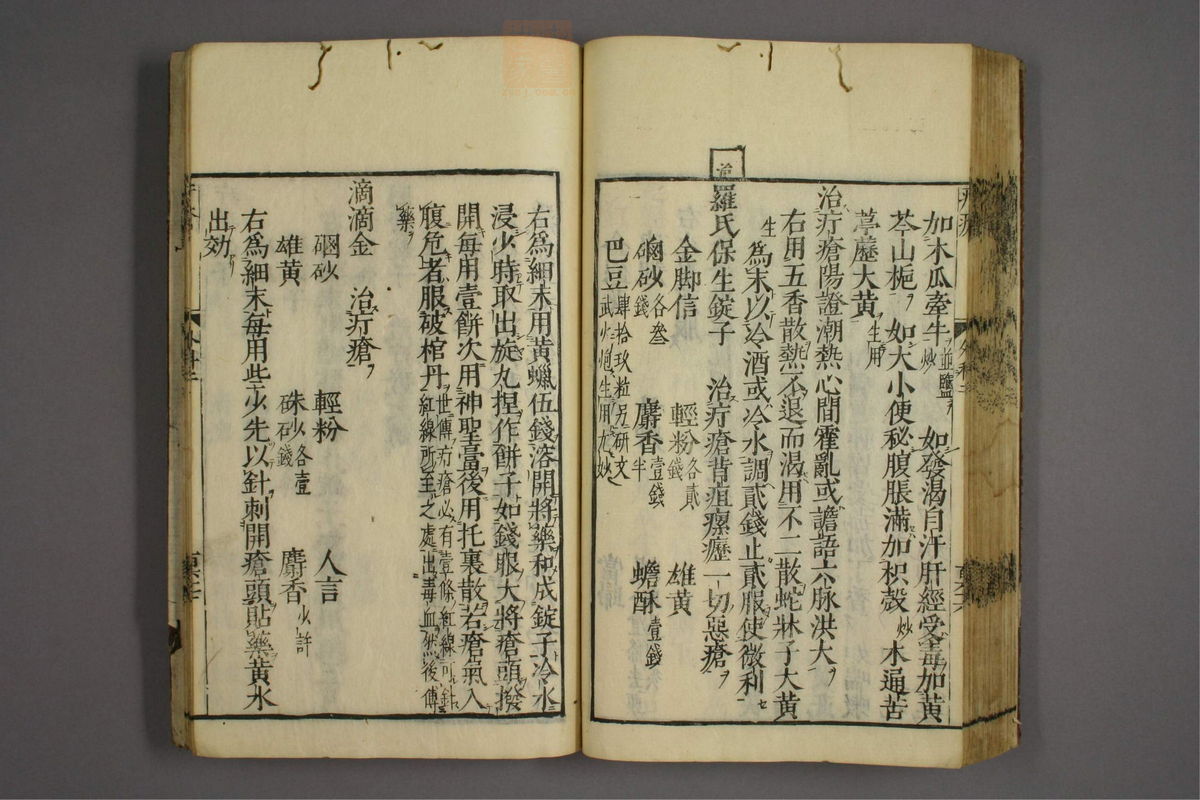 加木瓜牽牛並鹽炒 如發渴自汗肝經受毒加黃
芩山梔ヲ 如大小便秘腹脹滿加枳殼炒 木通苦
葶藶大黃生用
治疔瘡陽證潮熱心間霍亂或譫語六脉洪大ヲ
右用五香散熱不退而渴用不二散蛇牀子大黃
生爲末以冷酒或冷水調貳錢止貳服使微利セ
羅氏保生錠子 治疔瘡背疽瘰癧一切惡瘡ヲ
金脚信 輕粉各貳錢 雄黃
硇砂各叁錢 麝香壹錢半 蟾酥壹錢
巴豆肆拾玖粒另研文武火炮生用尤妙
右爲細末用黃蠟伍錢溶開將藥和成錠子冷水
浸少時取出旋丸捏作餅子如錢眼大將瘡頭撥
開每用壹餅次用神聖膏後用托裏散若瘡氣入
腹危者服破棺丹世傳疔瘡必有壹條紅線可針紅線所至之處出毒血然後傅
藥ヲ
滴滴金 治疔瘡ヲ
硇砂 輕粉 人言
雄黃 硃砂各壹錢 麝香少許
右爲細末每用些少先以針刺開瘡頭貼藥黃水
出効